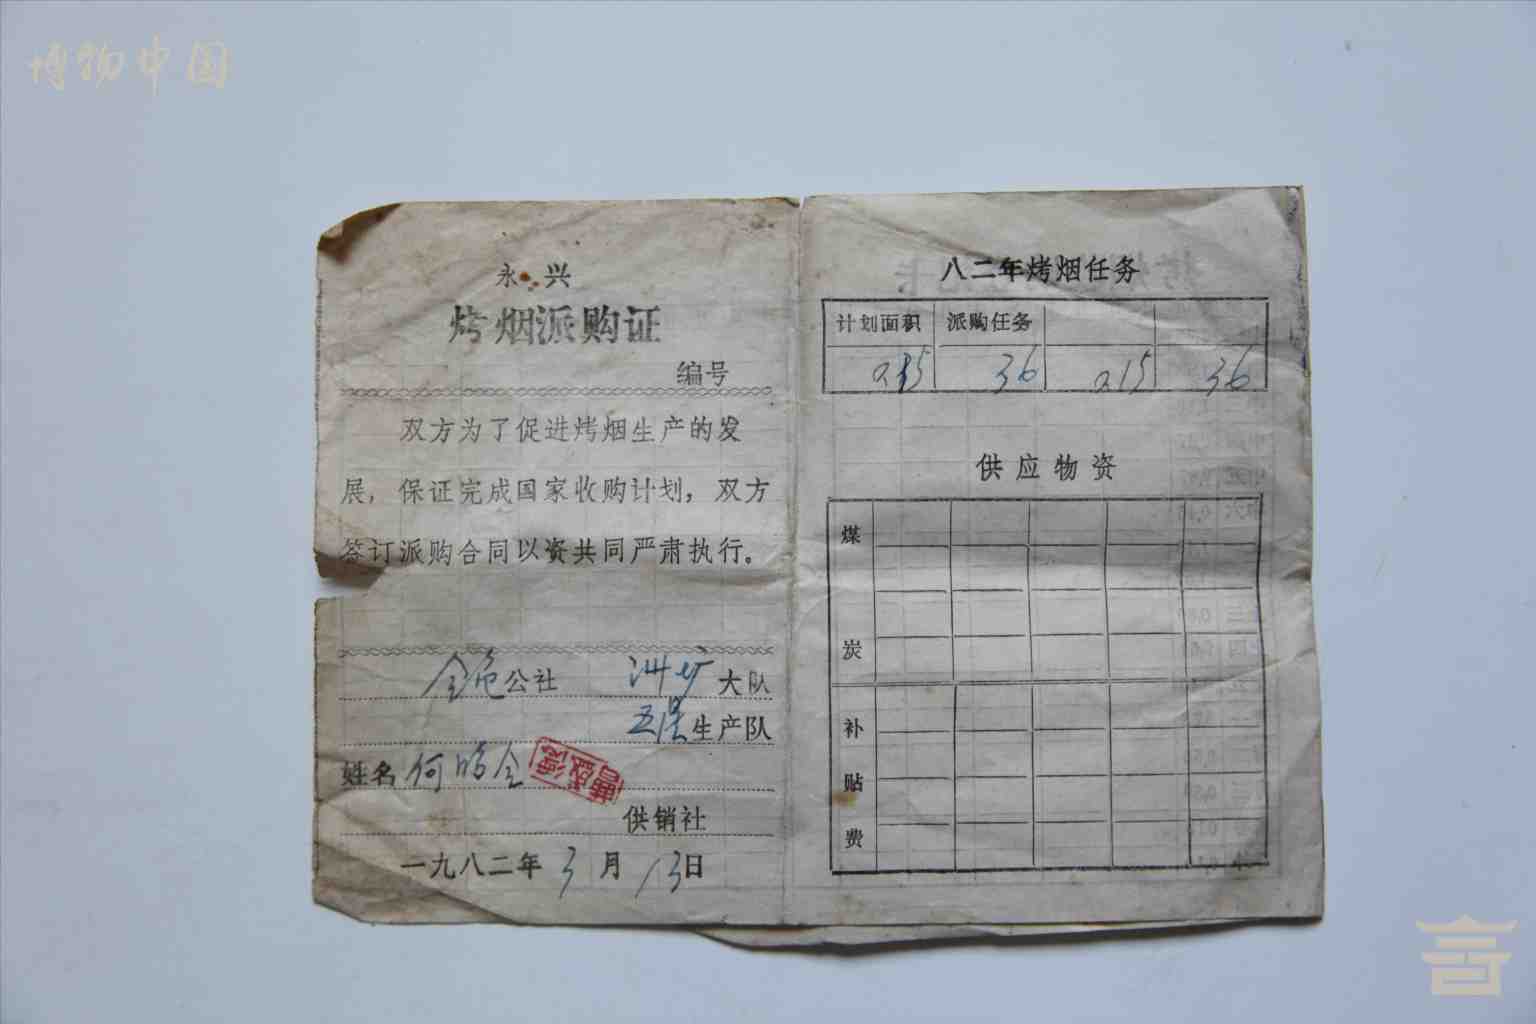 博物中国
永兴
烤烟派购证
编号
双方为了促进烤烟生产的发
展，保证完成国家收购计划，双方
签订派购合同以资共同严肃执行。
公社 大队
生产队
姓名 何
供销社
一九八二年3月13日
八二年烤烟任务
计划面积 派购任务
0.15 36 0.15 36
供应物资
煤
炭
补
贴
费